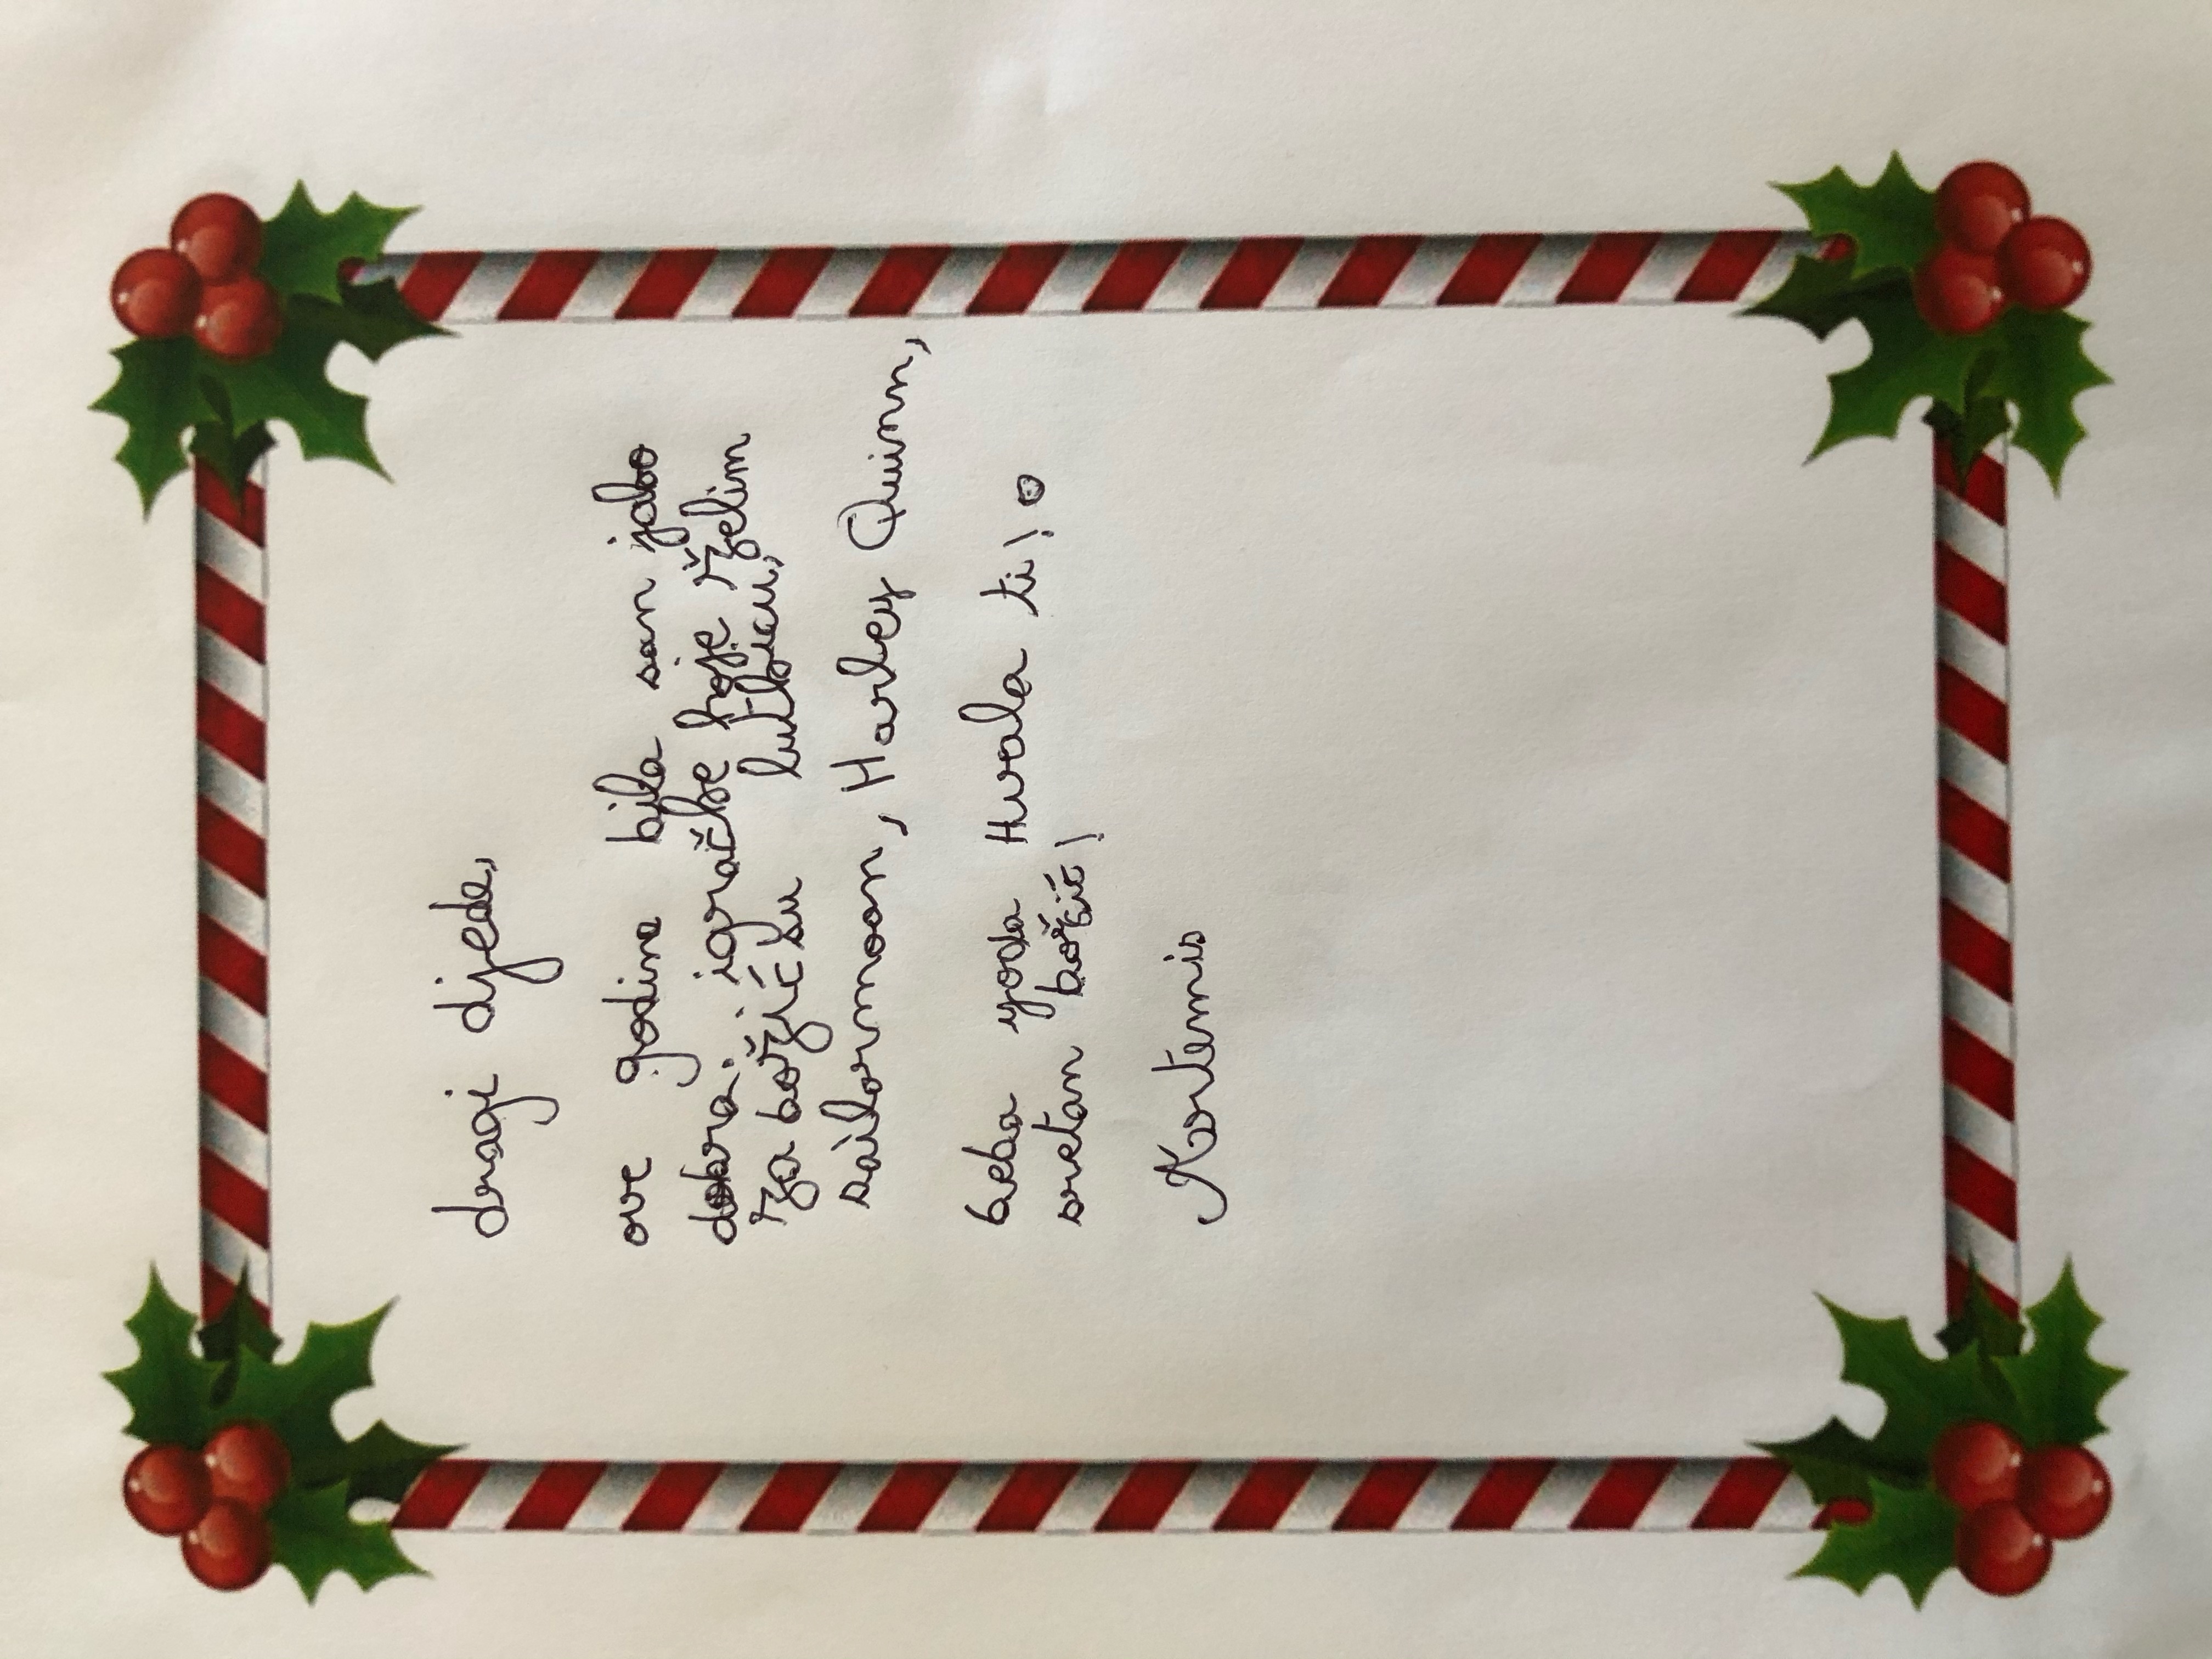 dragi djede,
ove godine bila sam jako
dobra. igračke koje želim
za božić su lutkicu,
sailormoon, Harley Quinn,
beba yoda Hvala ti!
sretan božić!